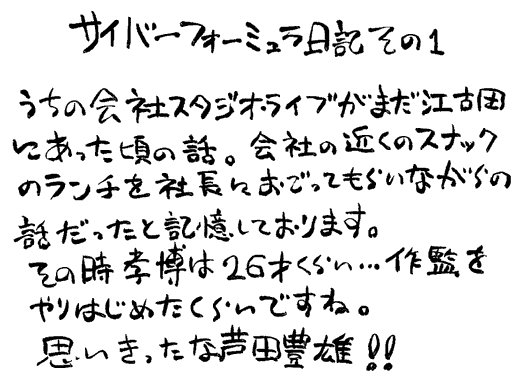 サイバーフォーミュラ日記その1
うちの会社スタジオ・ライブがまだ江古田
にあった頃の話。会社の近くのスナック
のランチを社長におごってもらいながらの
話だったと記憶しております。
その時孝博は26才くらい…作監を
やりはじめたくらいですね。
思いきったな芦田豊雄!!